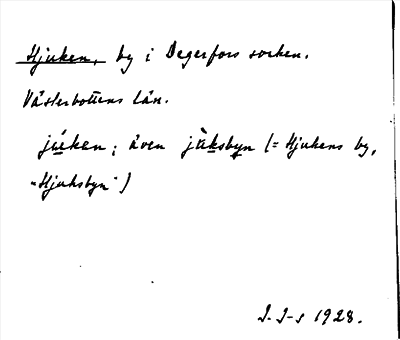 Hjuken, by i Degerfors socken.
Västerbottens län.
júken; även jùksbyn (= Hjukens by,
"Hjuksbyn")
J. J-s 1928.